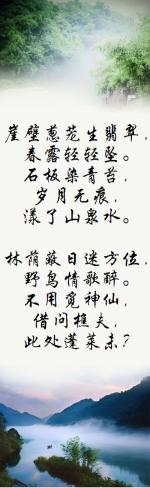 崖壁葱茏生翡翠，
春露轻轻坠。
石板染青苔，
岁月无痕，
漾了山泉水。
林荫蔽日迷方位，
野鸟情歌醉。
不用觅神仙，
借问樵夫，
此处蓬莱未？